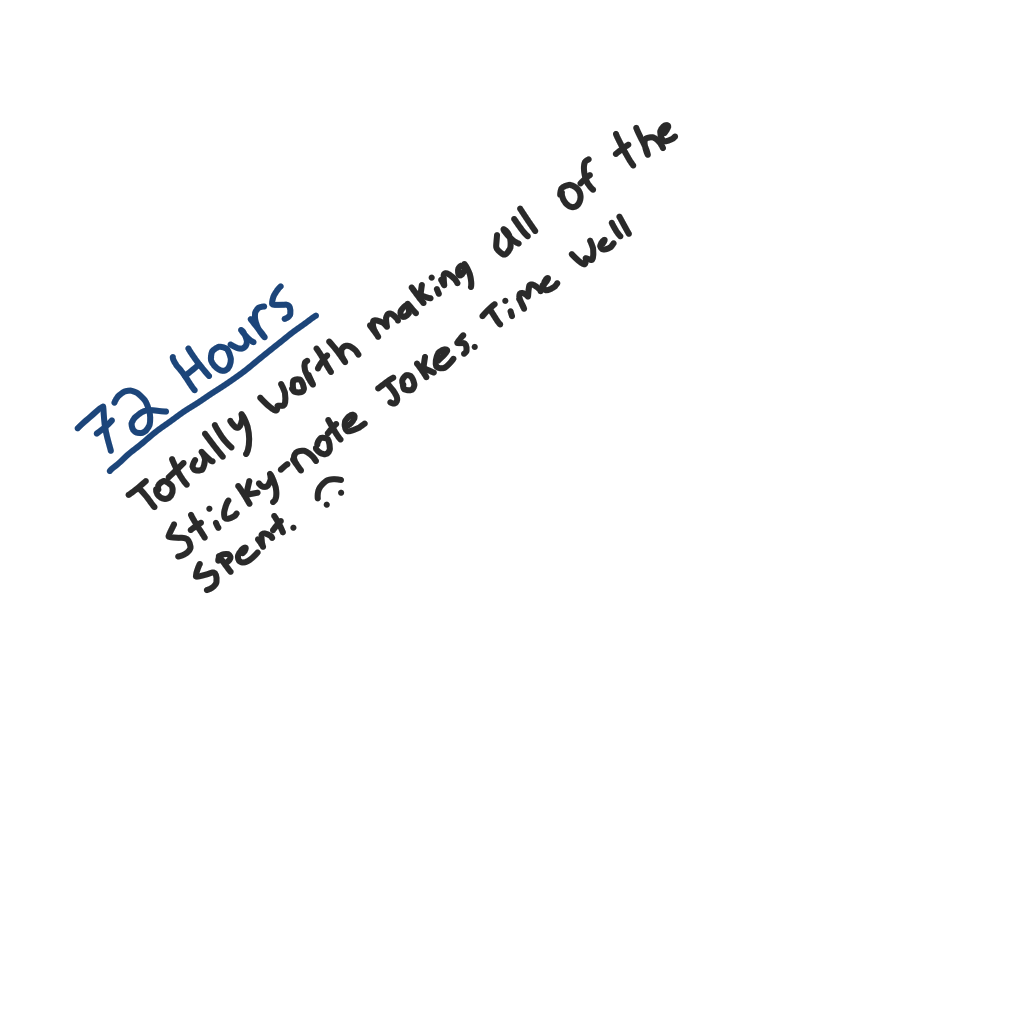 72 Hours
Totally worth making all of the
Sticky-note Jokes. Time well
Spent. :)